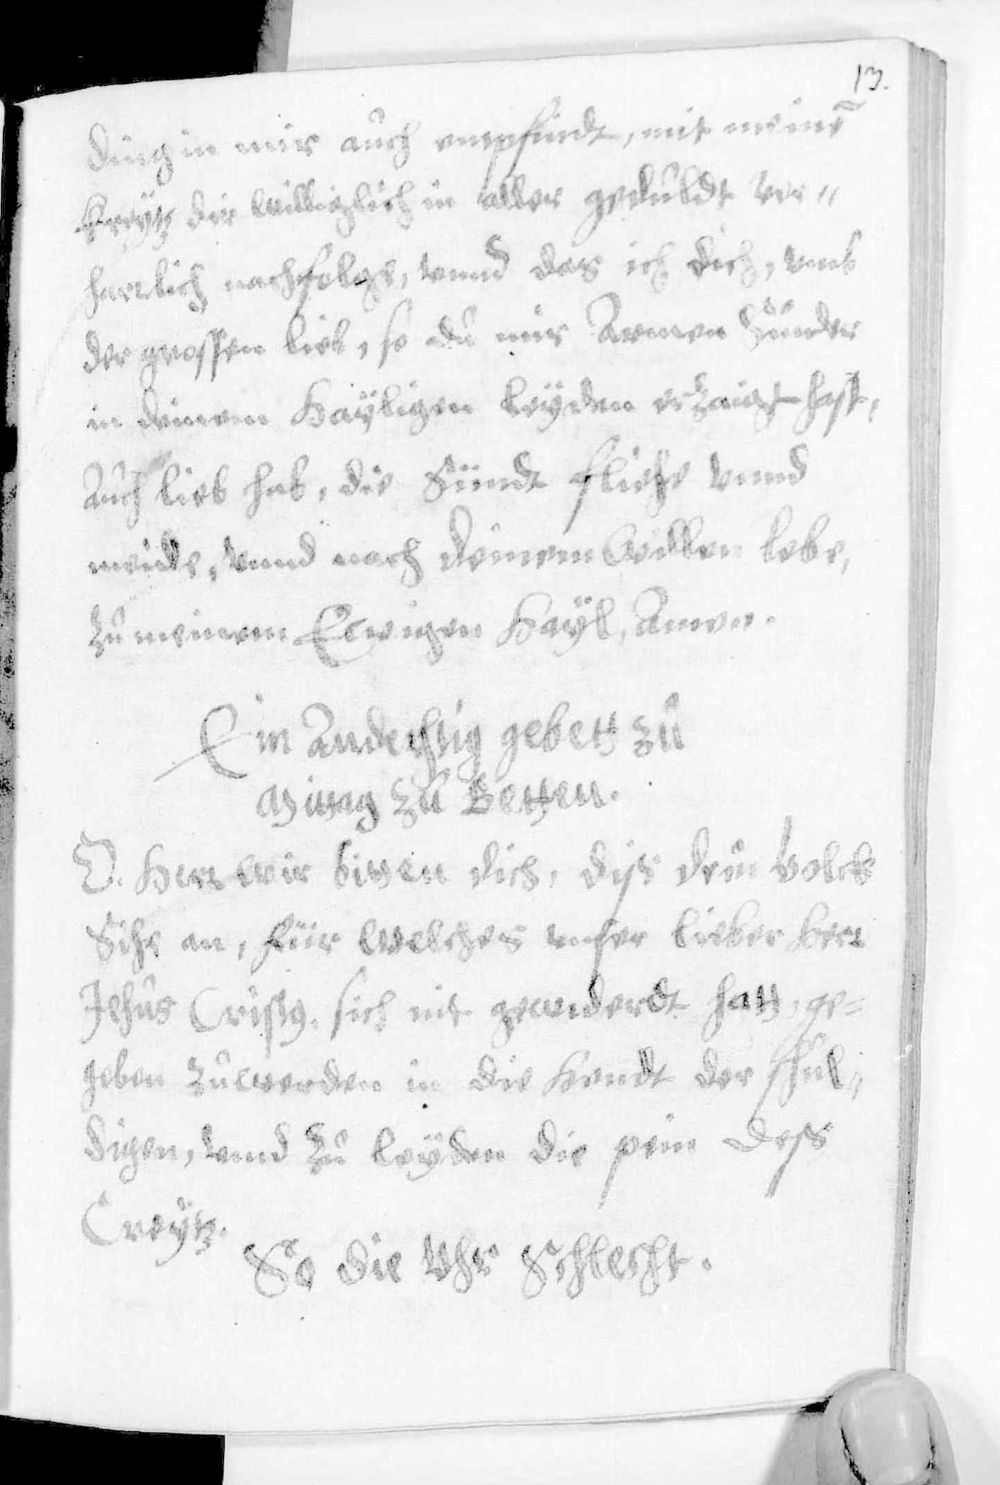 13.
ding in mir auch empfindt, mit meinē
Kreytz dir willigklich in aller gedúldt ver„
harrlich nachfolge, vnnd das ich dich, vmb
der grossen lieb, so dú mir Armen Súnder
in deinem Hayligen leyden erzaigt hast,
Aúch lieb hab, die Sündt fliehe vnnd
meide, vnnd nach deinem willen lebe,
zú meinem Ewigen Hayl, Amen.
Ein Andechtig gebett zú
mittag zú Betten.
O. Herr wir bitten dich, diß dein volck
Sihe an, für welches vnser lieber Herr
Jhesús Cristus sich nit gewidert hatt, ge=
geben zúwerden in die hendt der schúl„
digen, vnnd zú leyden die pein deß
Creytz.
So die Vhr Schlecht.